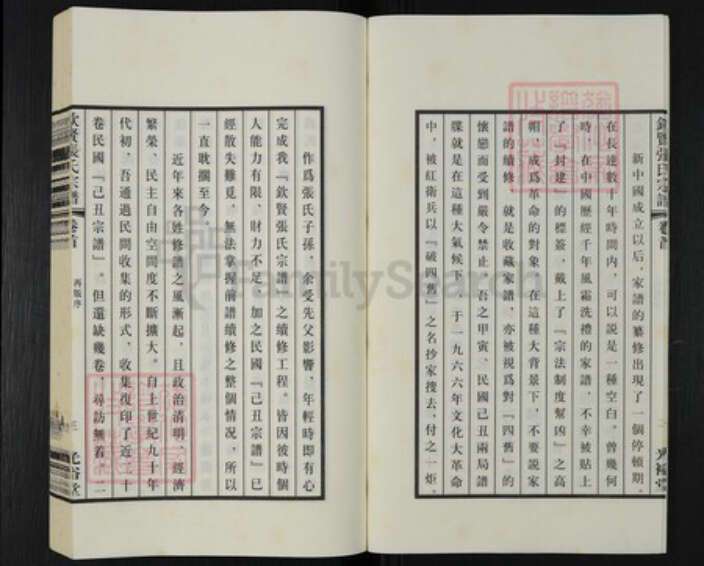 新中國成立以后，家譜的纂修出現了一個停頓期。
在長達數十年時間内，可以說是一種空白。曾幾何
時，在中國歷經千年风霜洗禮的家譜，不幸被貼上
了『封建』的標簽，戴上了『宗法制度幫凶』之高
帽，成爲革命的對象。在這種大背景下，不要說家
譜的續修，就是收藏家譜，亦被視爲對『四舊』的
懷戀而受到嚴令禁止。吾之甲寅、民國己丑兩局譜
牒就是在這種大氣候下，于一九六六年文化大革命
中，被紅衛兵以『破四舊』之名抄家搜去，付之一炬。
欽賢張氏宗譜
卷首
作爲張氏子孫，余受先父影響，年輕時即有心
完成我『欽賢張氏宗譜』之續修工程。皆因彼時個
人能力有限、財力不足，加之民國『己丑宗譜』已
經散失難覓，無法掌握前譜續修之整個情况，所以
一直耽擱至今。
近年來各姓修譜之風漸起，且政治清明、經濟
繁榮、民主自由空間度不斷擴大。自上世紀九十年
代初，吾通過民間收集的形式，收集復印了近三十
卷民國『己丑宗譜』。但還缺幾卷，尋訪無着。二
欽賢張氏宗譜
卷首
再版序
三
光裕堂
FamilySearch